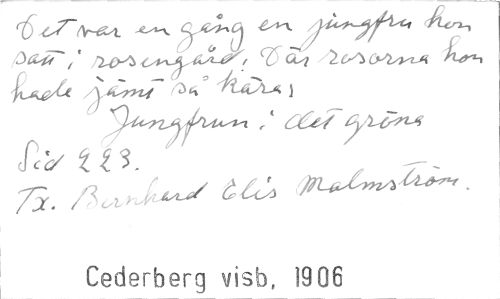 Det var en gång en jungfru hon
satt i rosengård, Där rosorna hon
hade jämt så kära,
Jungfrun i det gröna
Sid 223.
Tx. Bernhard Elis Malmström.
Cederberg visb, 1906